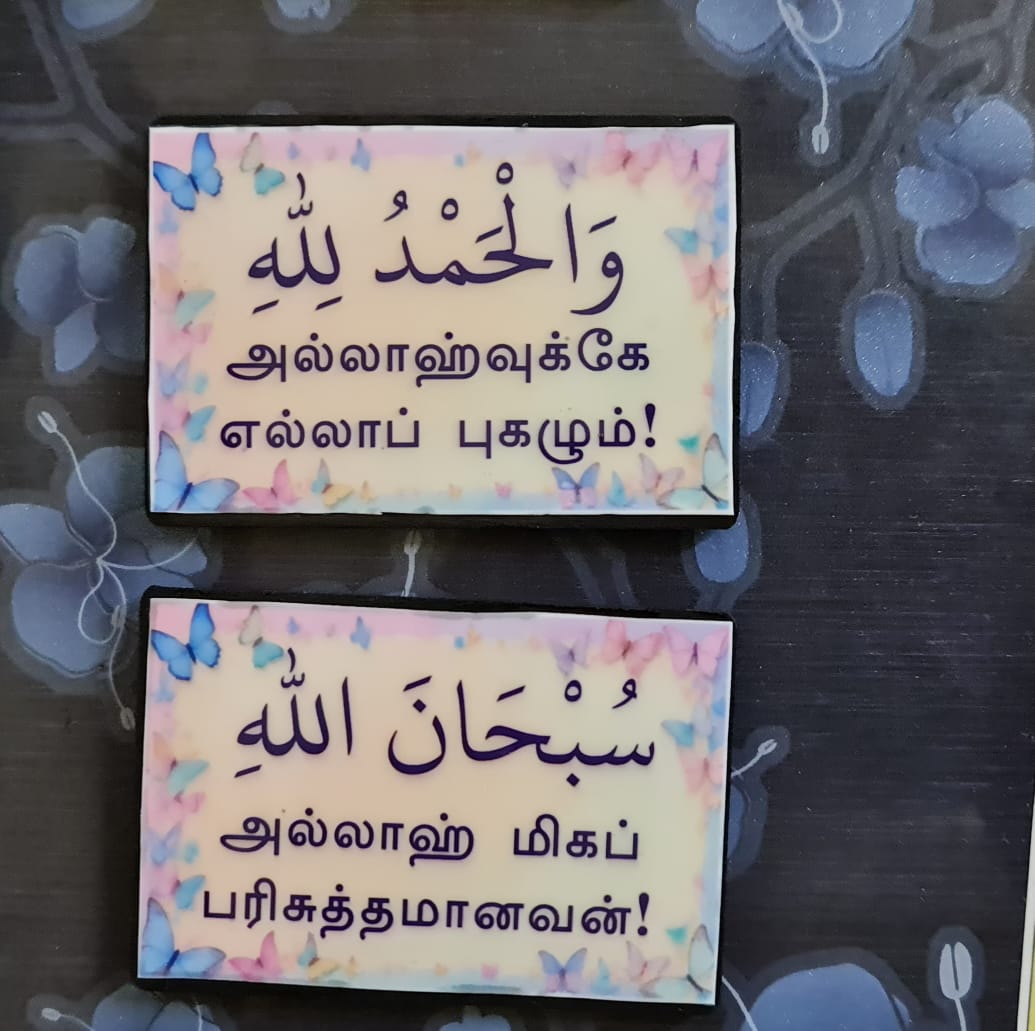 وَالْحَمْدُ لِلّٰهِ
அல்லாஹ்வுக்கே
எல்லாப் புகழும்!
سُبْحَانَ اللّٰهِ
அல்லாஹ் மிகப்
பரிசுத்தமானவன்!